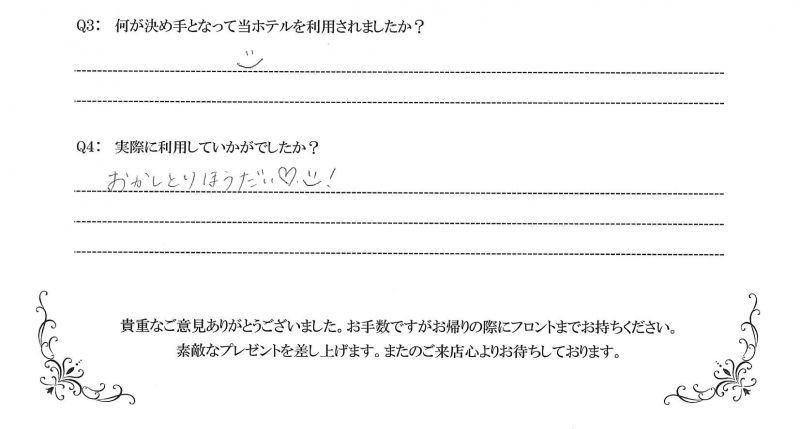 Q3： 何が決め手となって当ホテルを利用されましたか？
Q4： 実際に利用していかがでしたか？
おかしとりほうだい♡.!
貴重なご意見ありがとうございました。お手数ですがお帰りの際にフロントまでお持ちください。
素敵なプレゼントを差し上げます。またのご来店心よりお待ちしております。